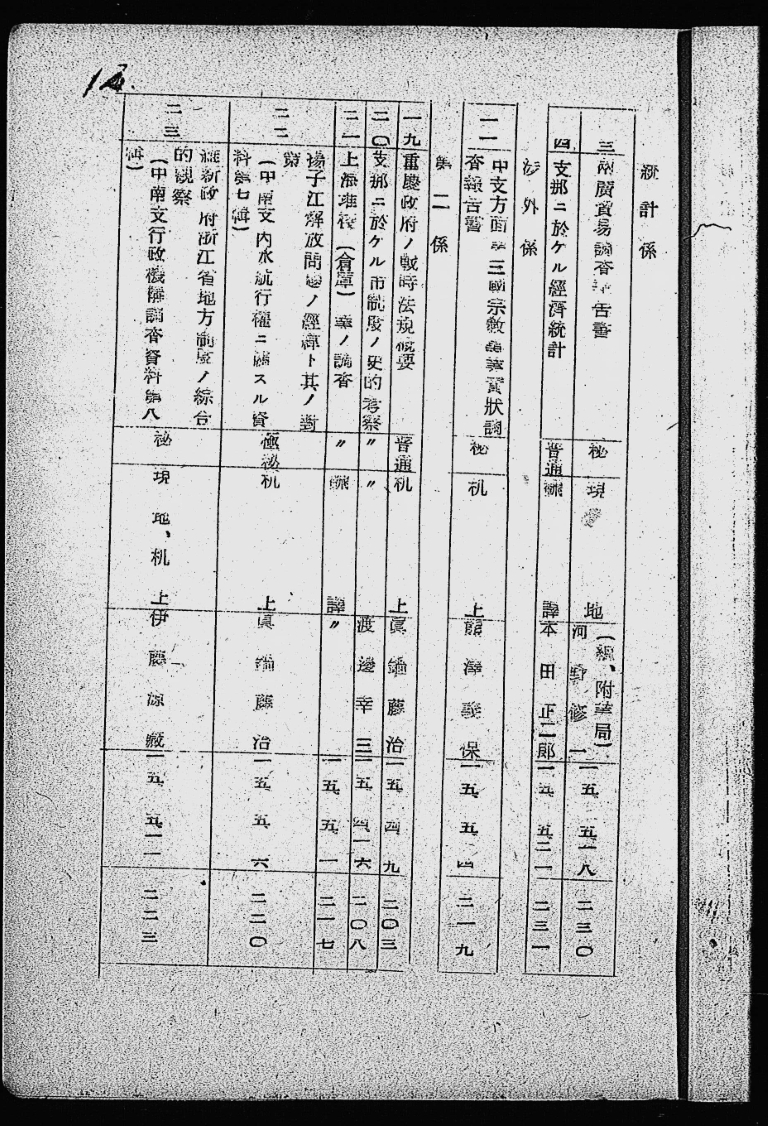 統計係
三 兩廣貿易調査報告書 秘 現地 (絹、附華局) 河野修一 一五、五、一八 二三〇
四 支那ニ於ケル經濟統計 普通 飜譯 本田正二郎 一五、五、二一 二三一
渉外係
二 中支方面第三國宗教 狀調
査報告書 秘 机上 熊澤義保 一五、五、四 二一九
第二係
一九 重慶政府ノ戰時法規概要 普通 机上 眞鍋藤治 一五、四、九 二〇三
二〇 支那ニ於ケル市制度ノ史的考察 〃 〃 渡邊幸三 一五、四、一六 二〇八
二一 上海堆棧(倉庫)業ノ調査 〃 飜譯 〃 一五、五、一 二一七
二二 揚子江解放問題ノ經緯ト其ノ對
策
(中南支內水航行權ニ關スル資
料第七輯) 極秘 机上 眞鍋藤治 一五、五、六 二二〇
二三 維新政府浙江省地方制度ノ綜合
的觀察
(中南支行政機構調査資料第八
輯) 秘 現地、机上 伊藤 藏 一五、五、一一 二二三